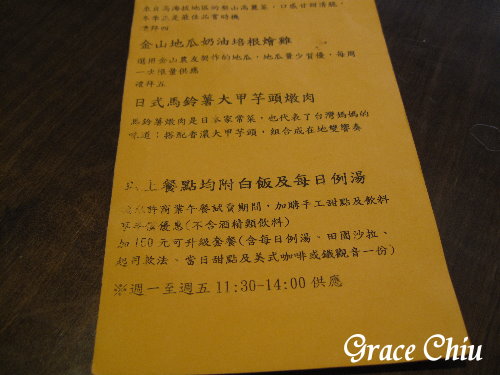 來自高海拔地區的梨山高麗菜,口感甘甜清脆,
冬季正是最佳品嘗時機
禮拜四
金山地瓜奶油培根燴雞
選用金山農友契作的地瓜,地瓜量少質優,每周
一次限量供應
禮拜五
日式馬鈴薯大甲芋頭燉肉
馬鈴薯燉肉是日本家常菜,也代表了台灣媽媽的
味道;搭配香濃大甲芋頭,組合成在地雙響奏
以上餐點均附白飯及每日例湯
商業午餐試賣期間,加購手工甜點及飲料
優惠(不含酒精類飲料)
加150元可升級套餐(含每日例湯、田園沙拉、
起司歐法、當日甜點及美式咖啡或鐵觀音一份)
※週一至週五11:30-14:00供應
Grace Chiu